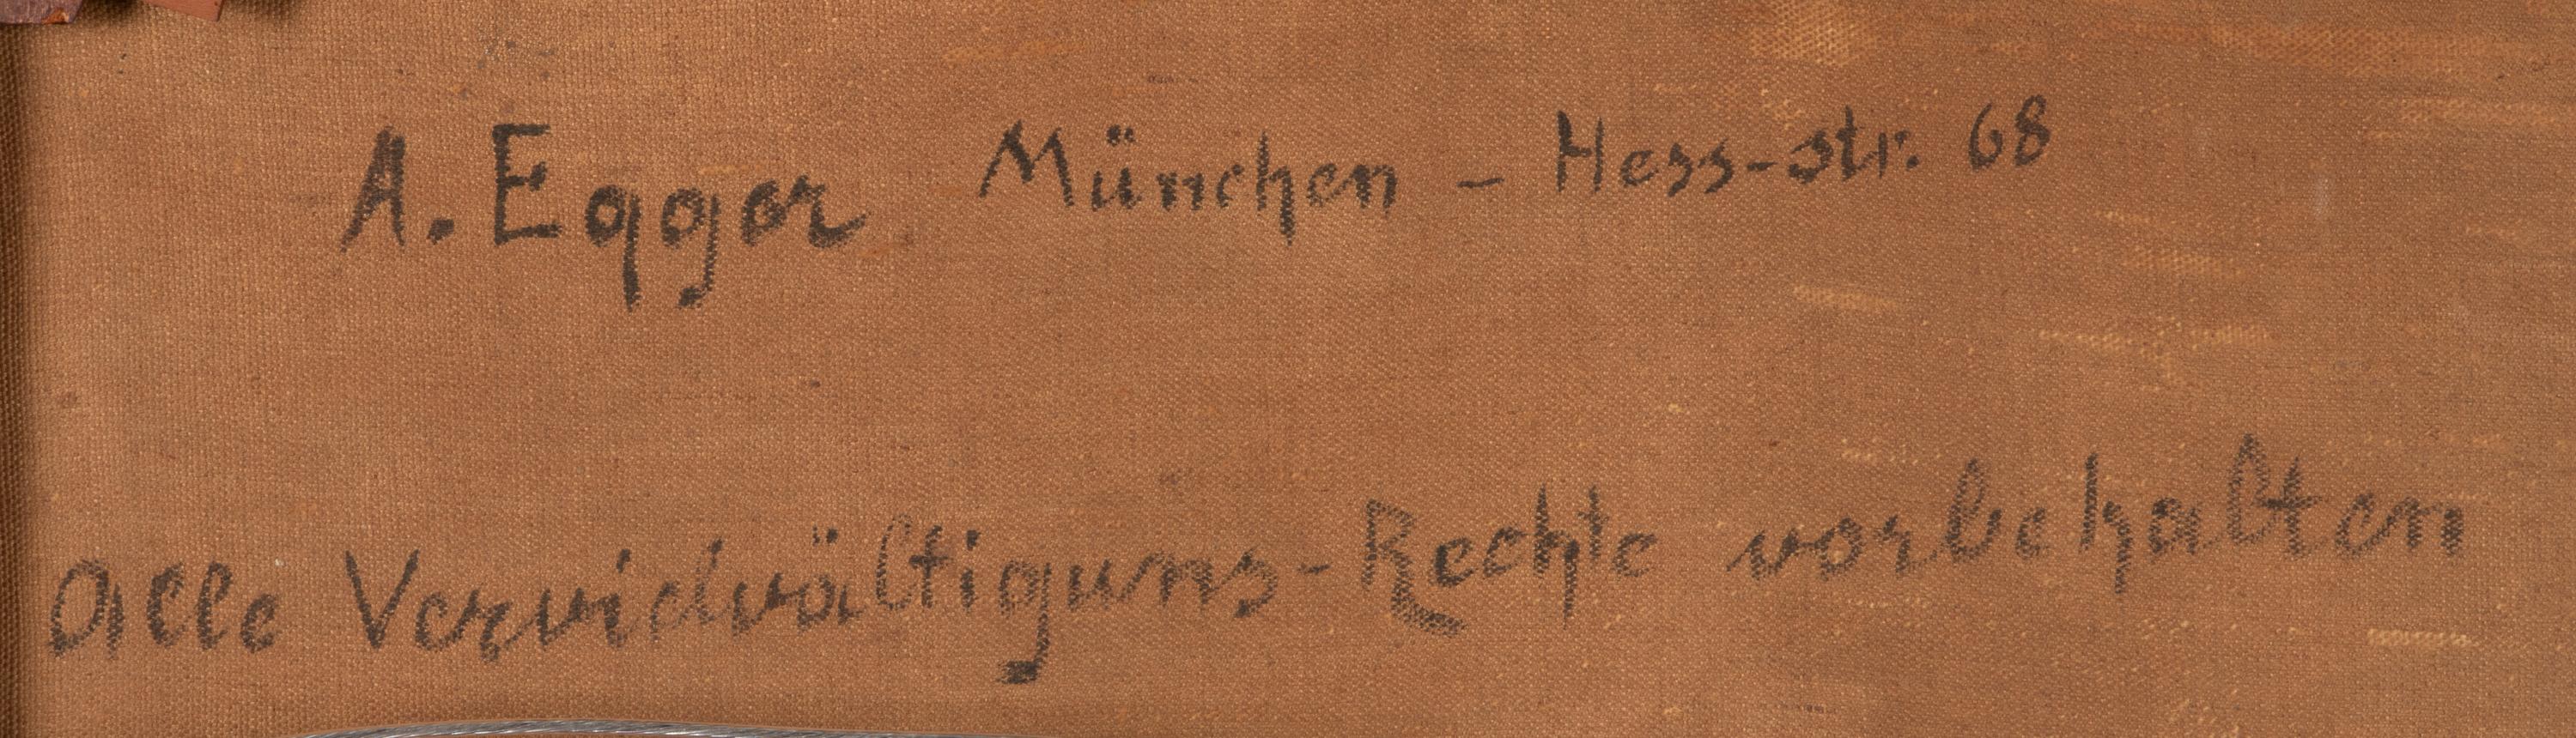 A. Egger München - Hess-str. 68
Alle Vervielvältiguns-Rechte vorbehalten